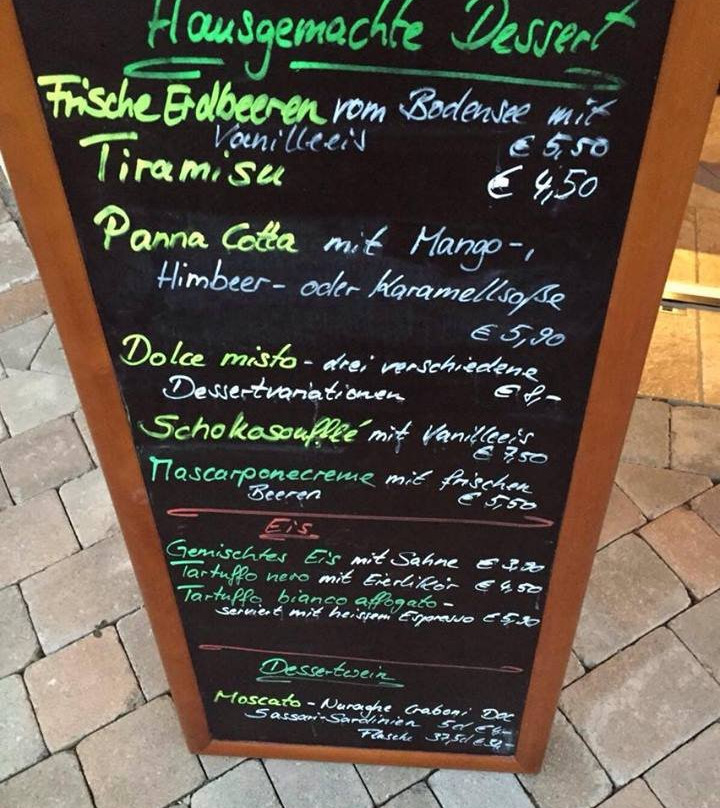 Hausgemachte Dessert
Frische Erdbeeren vom Bodensee mit
Vanilleeis € 5,50
Tiramisu € 4,50
Panna Cotta mit Mango-,
Himbeer- oder Karamellsoße
€ 5,90
Dolce misto - drei verschiedene
Dessertvariationen € 8,-
Schokosoufflé mit Vanilleeis
€ 7,50
Mascarponecreme mit frischen
Beeren € 5,50
Eis
Gemischtes Eis mit Sahne € 3,90
Tartuffo nero mit Eierlikör € 4,50
Tartuffo bianco affogato -
serviert mit heissem Espresso € 5,90
Dessertwein
Moscato - Nuraghe Craboni Doc
Sassari-Sardinien 5cl
Flasche 37,5cl